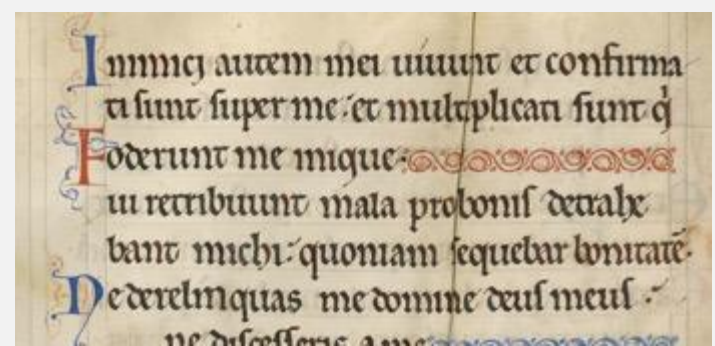 Inimici autem mei uiuunt et confirma
ti sunt super me: et multiplicati sunt q̇
oderunt me inique.
Fui retribuunt mala pro bonis detrahe
bant michi: quoniam sequebar bonitatē.
Ne derelinquas me domine deus meus.
ne discesseris a me